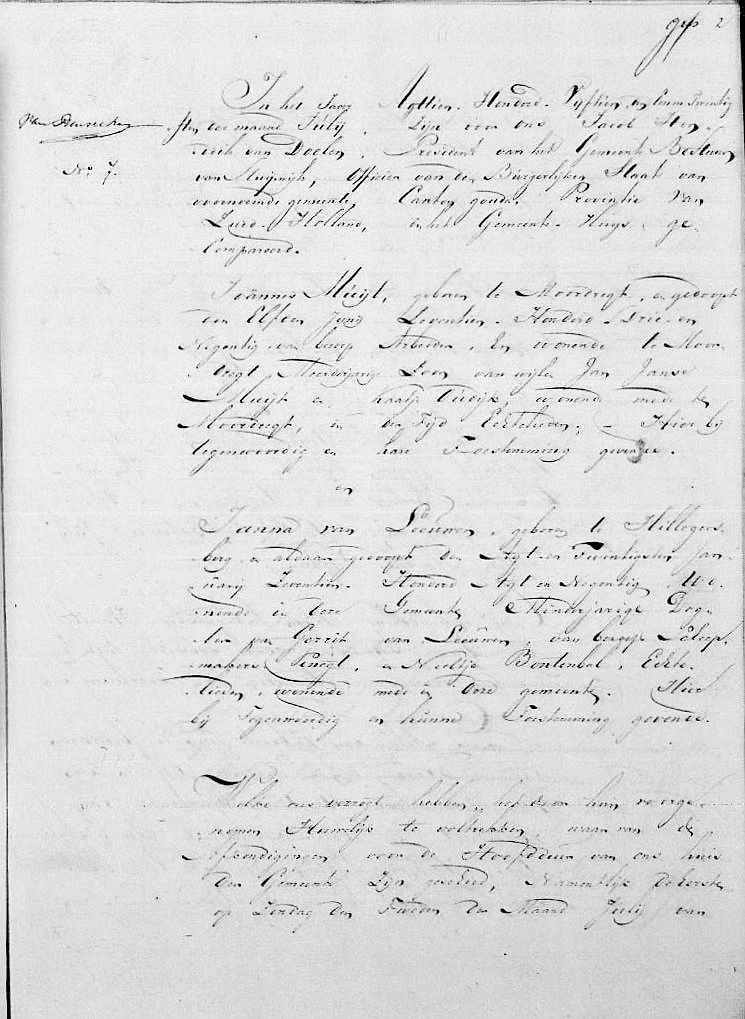 2
In het Jaar Agttien Honderd Vyftien, den Eenen Twintig
sten der maand Julij, Zijn voor ons Jacob Hen
drik van Doelen, President van het Gemeente Bestuur
van Kuijwijk, Officier van den Burgerlyken Staat van
voornoemde gemeente, Canton gouda, Provintie van
Zuid-Holland, in het Gemeente-Huys ge
Compareerd.
No 7.
Joännes Muijt, geboren te Moordregt, en gedoopt
den Elfden Junij Zeventien-Honderd-Drie-en
Negentig, van beroep Arbeider, En wonende te Moor
dregt Meerderjarige Zoon van wijlen Jan Janse
Muijt en Odijk, wonende mede te
Moordregt, in der Tijd Echtelieden, - Hier bij
tegenwoordig en hare Toestemming gevende.
en
Janna van Leeuwen, geboren te Hillegers
berg en aldaar gedoopt den Agt-en-Twintigsten Jan
uarij Zeventien Honderd Agt en Negentig Wo
nende in deze Gemeente Minderjarige Dog
ter van Gerrit van Leeuwen, van beroep Scheep
makers, en Neeltje Bontenbal, Echte
lieden, wonende mede in deze gemeente. Hier
bij Tegenwoordig en hunne Toestemming gevende.
Welke ons verzogt hebben, het door hun voorge
nomen Huwelijk te voltrekken, waar van de
Afkondigingen voor de Hoofddeur van ons huis
der Gemeente Zijn geschied, Namentlijk de Eerste
op Zondag den der Maand Julij van